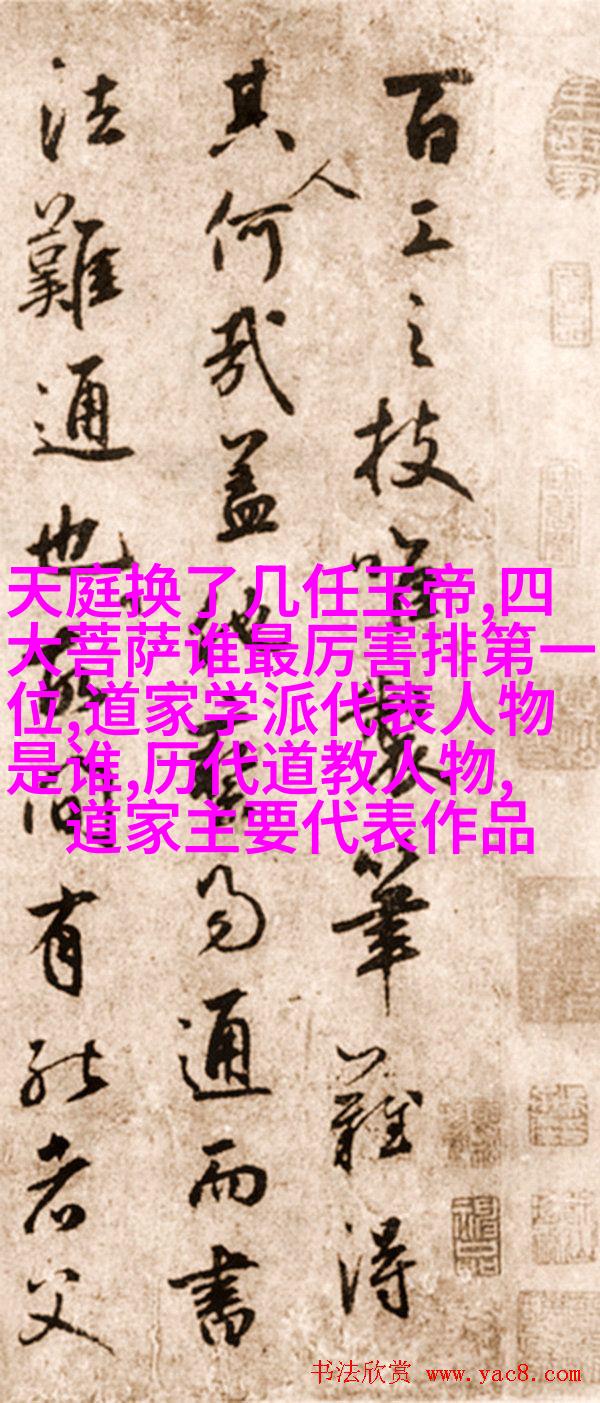 百工之技唯製筆難得
其人何哉蓋他藝易通而書
法難通也間有能者父
天庭换了几任玉帝,四
大菩萨谁最厉害排第一
位,道家学派代表人物
是谁,历代道教人物,
道家主要代表作品
书法欣赏 www.yac8.com